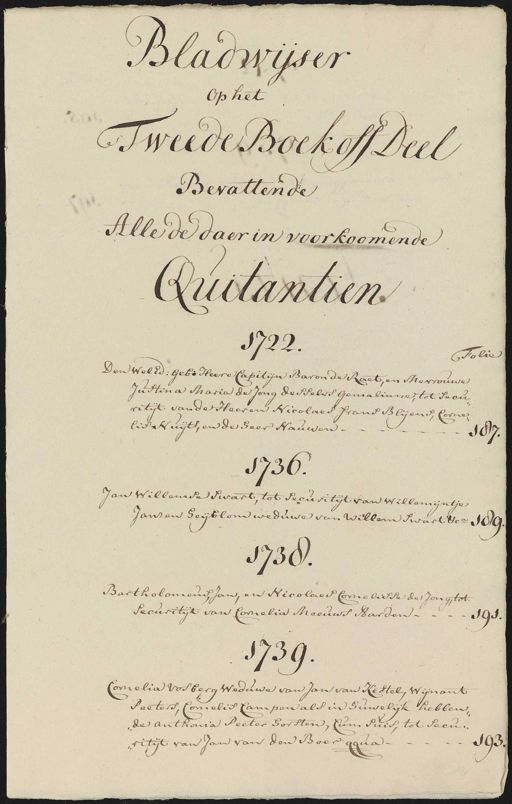 Bladwijser
Op het
Tweede Boek off Deel
Bevattende
Alle de daer in voorkoomende
Quitantien.
1722.
Folio
Den Wel Ed: Geb: Heere Capitijn Baron de Raet, en Mevrouwe
Justina Maria de Jong desselvs Gemalinne, tot Secu-
ritijt van de Heeren Nicolaes Frans Blijens, Corne-
lis Huijts, en de Heer Nauwen - - - - - - - 187.
1736.
Jan Willemse Swart, tot Securitijt van Willemijntje
Jansen Geijblom weduwe van Willem Swart 189.
1738.
Bartholomeus, Jan, en Nicolaes Cornelisse de Jong, tot
Securitijt van Cornelia Meeuws Harden - - - - - 191.
1739.
Cornelia Vosberg Weduwe van Jan van Kestel, Wijnant
Peeters, Cornelis Campen als in Huwelijk hebben,,
,,de Anthonia Peeter Gorsten, Cum Suis, tot Secu-
ritijt van Jan van den Boer qqua - - - - - - - 193.